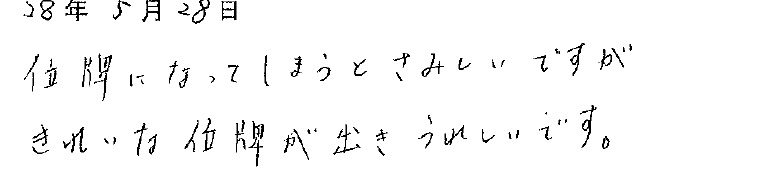 28年 5月28日
位牌になってしまうとさみしいですが
きれいな位牌が出きうれしいです。